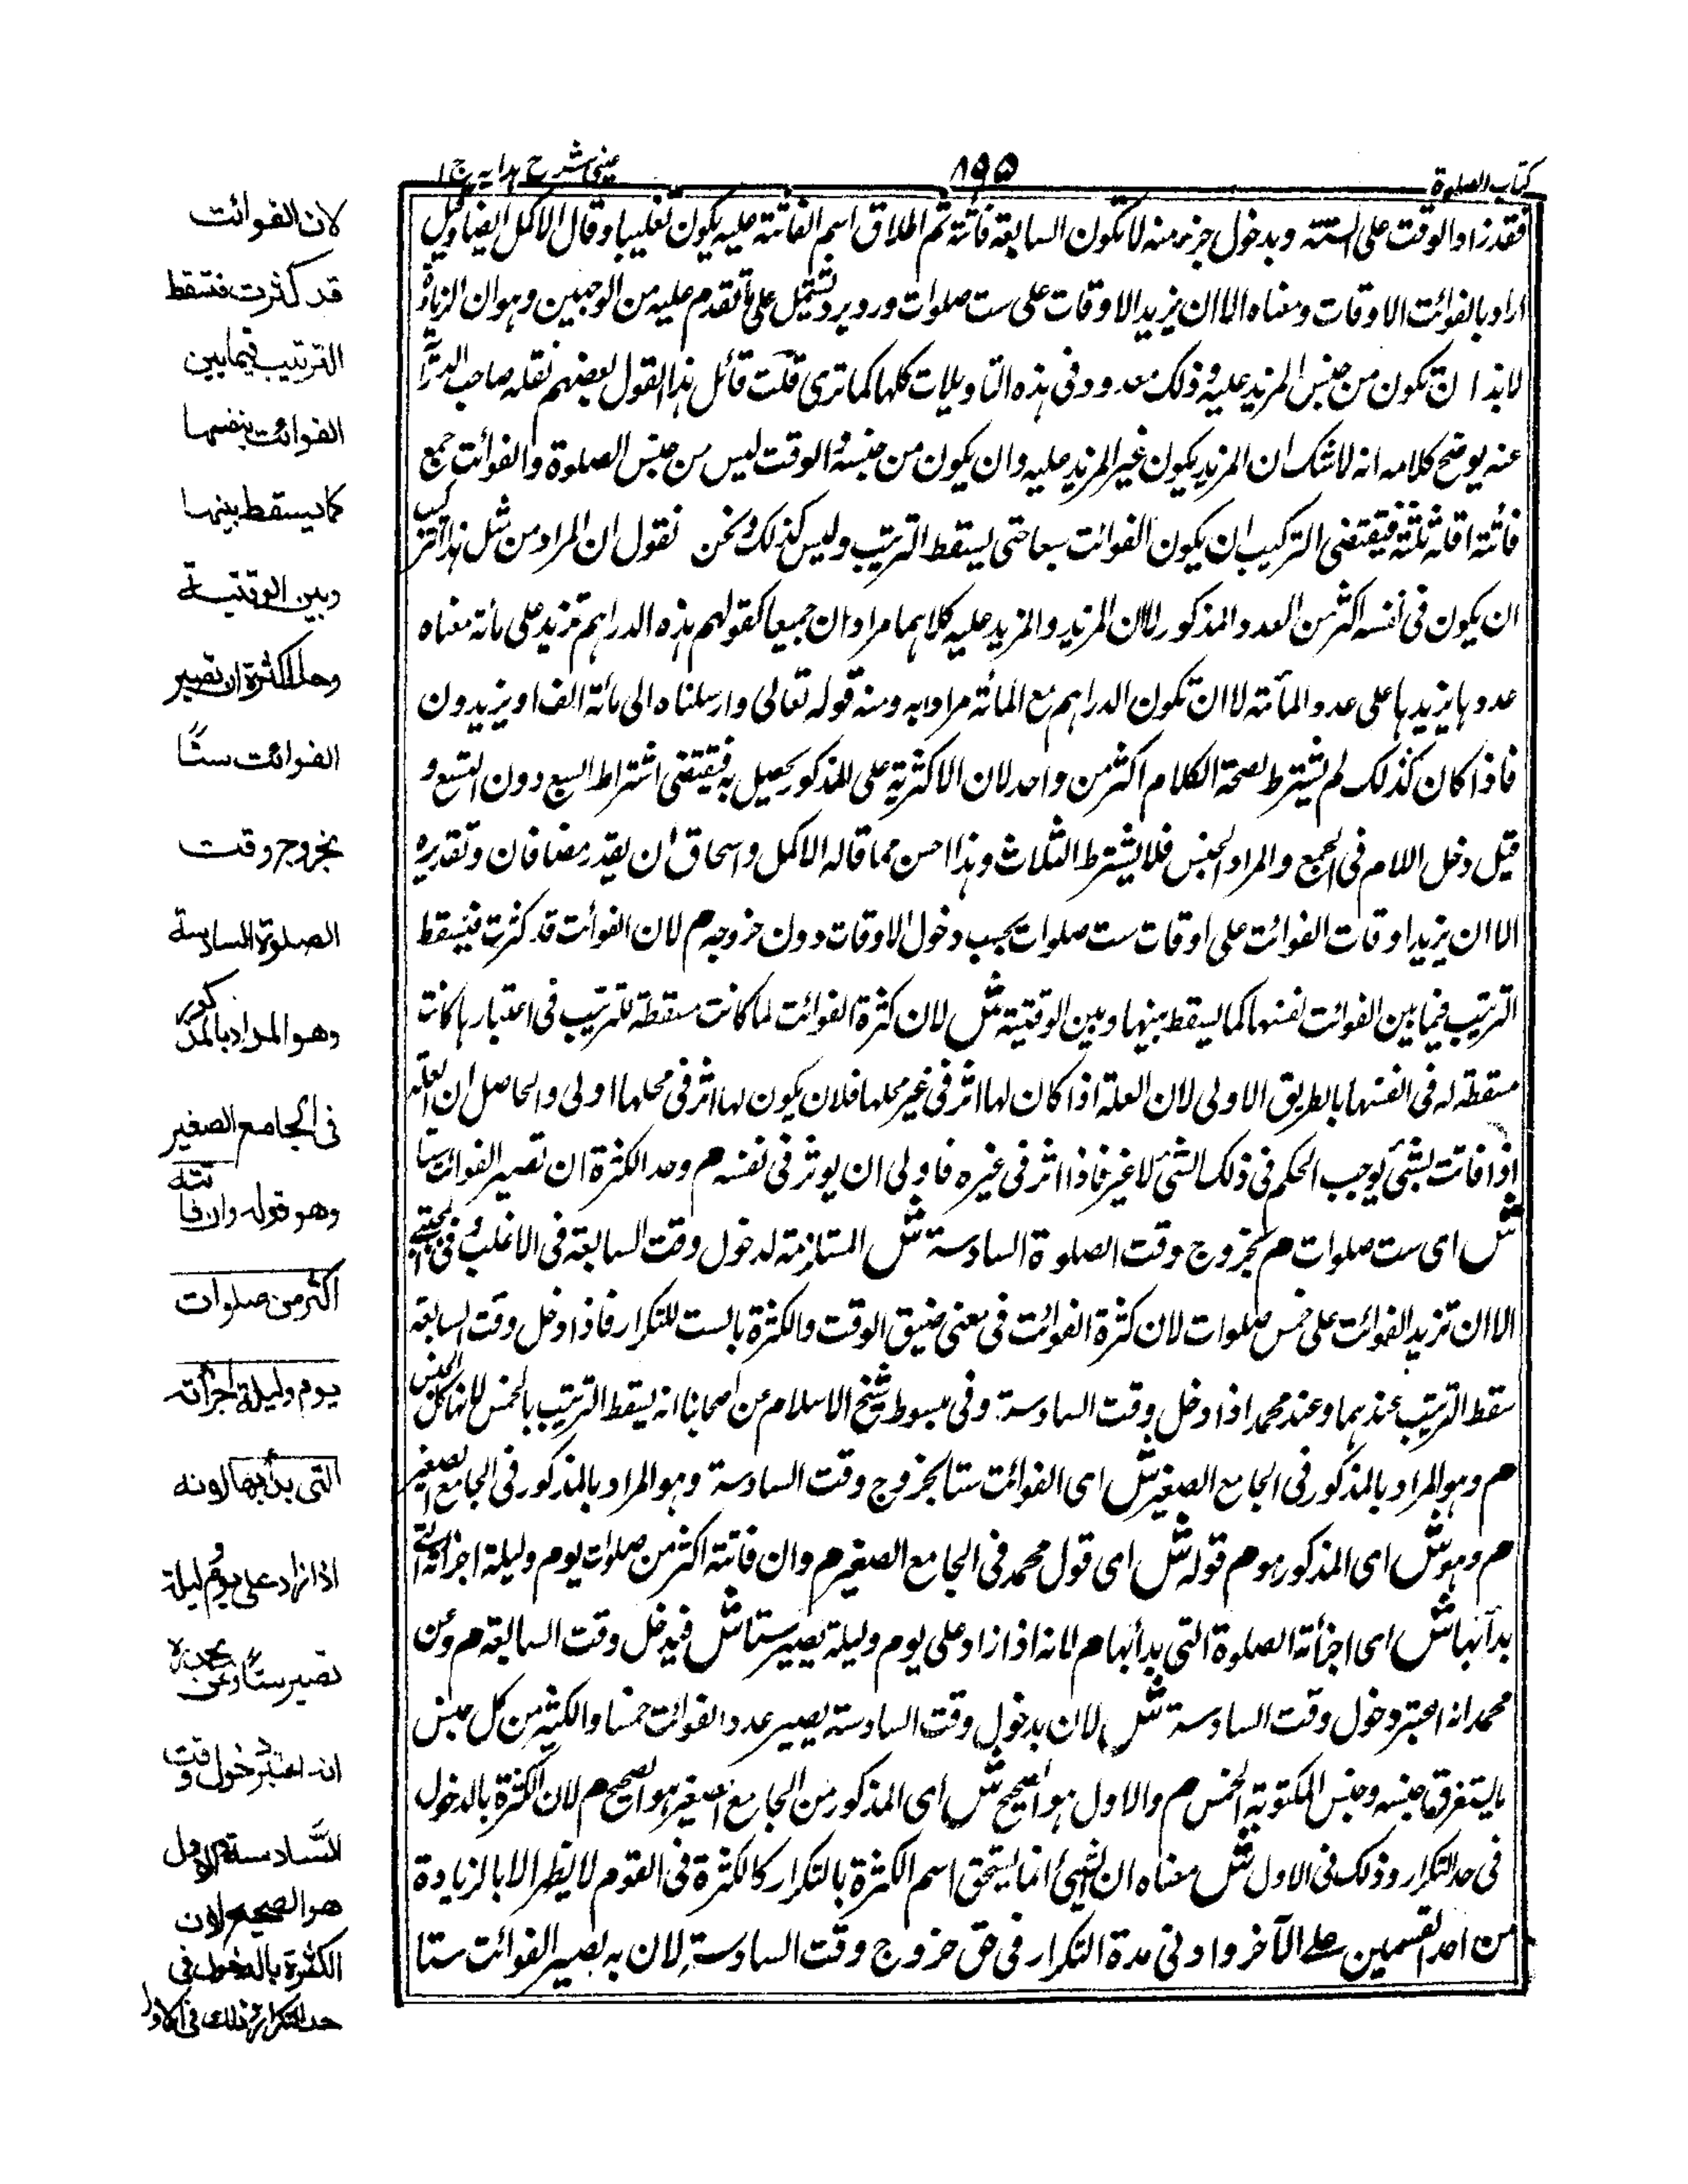 كتاب الصلوة
٨٩٥
عينى شرح هدايه ج ١
فقد زاد الوقت على الستة وبدخول جزء منه لا تكون السابعة فائتة ثم اطلاق اسم الفائتة عليه يكون تغليبا وقال الاكمل ايضا وقيل
اراد بالفوائت الاوقات ومعناه الا ان يزيد الاوقات على ست صلوات ورد يرد تشتمل على ما تقدم عليه من الوجهين وهو ان الزيادة
لا بد ا ن تكون من جنس المزيد عليه وذلك معدود فى هذه التاويلات كلها كما ترى قلت قائل هذا القول بعضهم نقله صاحب الدراية
عنه يوضح كلامه انه لا شك ان المزيد يكون غير المزيد عليه وان يكون من جنسه والوقت ليس من جنس الصلوة والفوائت جمع
فائتة اقله ثلثة فيقتضى التركيب ان يكون الفوائت سبعا حتى يسقط الترتيب وليس كذلك ونحن نقول ان المراد من مثل هذا التركيب
ان يكون فى نفسه اكثر من العدد المذكور لا ان المزيد والمزيد عليه كلاهما مرادان جميعا كقولهم هذه الدراهم تزيد على مائة معناه
عددها يزيدها على عدد المائة لا ان تكون الدراهم مع المائة مرادا به ومنه قوله تعالى وارسلناه الى مائة الف او يزيدون
فاذا كان كذلك لم يشترط لصحة الكلام اكثر من واحد لان الاكثرية على المذكور يحصل به فيقتضى اشتراط السبع دون التسع و
قيل دخل اللام فى الجمع والمراد الجنس فلا يشترط الثلاث وهذا احسن مما قاله الاكمل واسحاق ان يقدر مضافان وتقديره
الا ان يزيد اوقات الفوائت على اوقات ست صلوات بحسب دخول الاوقات دون خروجه م لان الفوائت قد كثرت فيسقط
الترتيب فيما بين الفوائت نفسها كما يسقط بينها وبين الوقتية ش لان كثرة الفوائت لما كانت مسقطة للترتيب فى اعتبارها كانت
مسقطة له فى انفسها بالطريق الاولى لان العلة اذا كان لها اثر فى غير محلها فلان يكون لها اثر فى محلها اولى والحاصل ان العلة
اذا فاتت بشئ يوجب الحكم فى ذلك الشئ لا غير فاذا اثر فى غيره فاولى ان يوثر فى نفسه م وحد الكثرة ان تصير الفوائت ستا
ش اى ست صلوات م بخروج وقت الصلوة السادسة ش المستلزمة لدخول وقت السابعة فى الاغلب وفى المجتبى
الا ان تزيد الفوائت على خمس صلوات لان كثرة الفوائت فى معنى ضيق الوقت والكثرة بالست للتكرار فاذا دخل وقت السابعة
سقط الترتيب عندهما وعند محمد اذا دخل وقت السادسة وفى مبسوط شيخ الاسلام عن اصحابنا انه يسقط الترتيب بالخمس لانها كل الجنس
م وهو المراد بالمذكور فى الجامع الصغير ش اى الفوائت ستا بخروج وقت السادسة وهو المراد بالمذكور فى الجامع الصغير
م وهو ش اى المذكور هو م قوله ش اى قول محمد فى الجامع الصغير م وان فاتته اكثر من صلوات يوم وليلة اجزأته التى
بدأ بها ش اى اجزأته الصلوة التى بدأ بها م لانه اذا زاد على يوم وليلة يصير ستا ش فيدخل وقت السابعة م وعن
محمد انه اعتبر دخول وقت السادسة ش لان بدخول وقت السادسة يصير عدد الفوائت خمسا والكثير من كل جنس
ما يستغرق جنسه وجنس المكتوبة الخمس م والاول هو الصحيح ش اى المذكور من الجامع الصغير هو الصحيح م لان الكثرة بالدخول
فى حد التكرار وذلك فى الاول ش معناه ان الشئ انما يستحق اسم الكثرة بالتكرار كالكثرة فى القوم لا يظهر الا بالزيادة
من احد القسمين على الآخر وادنى مدة التكرار فى حق خروج وقت السادسة لان به يصير الفوائت ستا
لان الفوائت
قد كثرت فتسقط
الترتيب فيما بين
الفوائت بنفسها
كما يسقط بينها
وبين الوقتية
وحد الكثرة ان تصير
الفوائت ستًا
بخروج وقت
الصلوة السادسة
وهو المراد بالمذكور
فى الجامع الصغير
وهو قوله وان فاتته
اكثر من صلوات
يوم وليلة اجزأته
التى بدأ بها لانه
اذا زاد على يوم وليلة
تصير ستًا وعن محمدؒ
انه اعتبر دخول وقت
السَّادسة والاول
هو الصحيح لان
الكثرة بالدخول فى
حد التكرار وذلك فى الاول